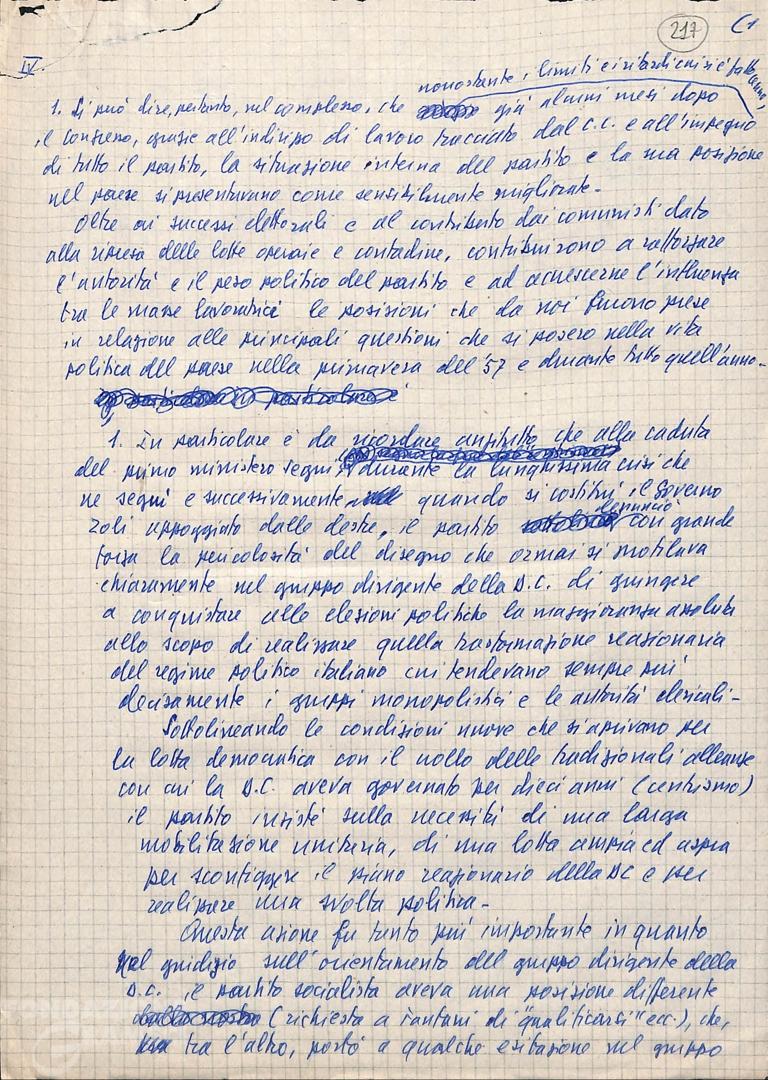 217 C1
IV
nonostante i limiti e i ritardi cui si è fatto cenno,
1. Si può dire, pertanto, nel complesso, che già alcuni mesi dopo
il congresso, grazie all'indirizzo di lavoro tracciato dal C.C. e all'impegno
di tutto il partito, la situazione interna del partito e la sua posizione
nel paese si presentavano come sensibilmente migliorate -
Oltre ai successi elettorali e al contributo dai comunisti dato
alla ripresa delle lotte operaie e contadine, contribuirono a rafforzare
l'autorità e il peso politico del partito e ad accrescerne l'influenza
tra le masse lavoratrici le posizioni che da noi furono prese
in relazione alle principali questioni che si posero nella vita
politica del paese nella primavera del '57 e durante tutto quell'anno -
1. In particolare è da ricordare anzitutto che alla caduta
del primo ministero Segni, durante la lunghissima crisi che
ne seguì e successivamente quando si costituì il Governo
denunciò
Zoli appoggiato dalle destre, il partito con grande
forza la pericolosità del disegno che ormai si profilava
chiaramente nel gruppo dirigente della D.C. di giungere
a conquistare alle elezioni politiche la maggioranza assoluta
allo scopo di realizzare quella trasformazione reazionaria
del regime politico italiano cui tendevano sempre più
decisamente i gruppi monopolistici e le autorità clericali -
Sottolineando le condizioni nuove che si aprivano per
la lotta democratica con il crollo delle tradizionali alleanze
con cui la D.C. aveva governato per dieci anni (centrismo)
il partito insisté sulla necessità di una larga
mobilitazione unitaria, di una lotta ampia ed aspra
per sconfiggere il piano reazionario della DC e per
realizzare una svolta politica -
Questa azione fu tanto più importante in quanto
nel giudizio sull'orientamento del gruppo dirigente della
D.C. il partito socialista aveva una posizione differente
(richiesta a Fanfani di "qualificarsi" ecc.), che,
tra l'altro, portò a qualche esitazione nel gruppo